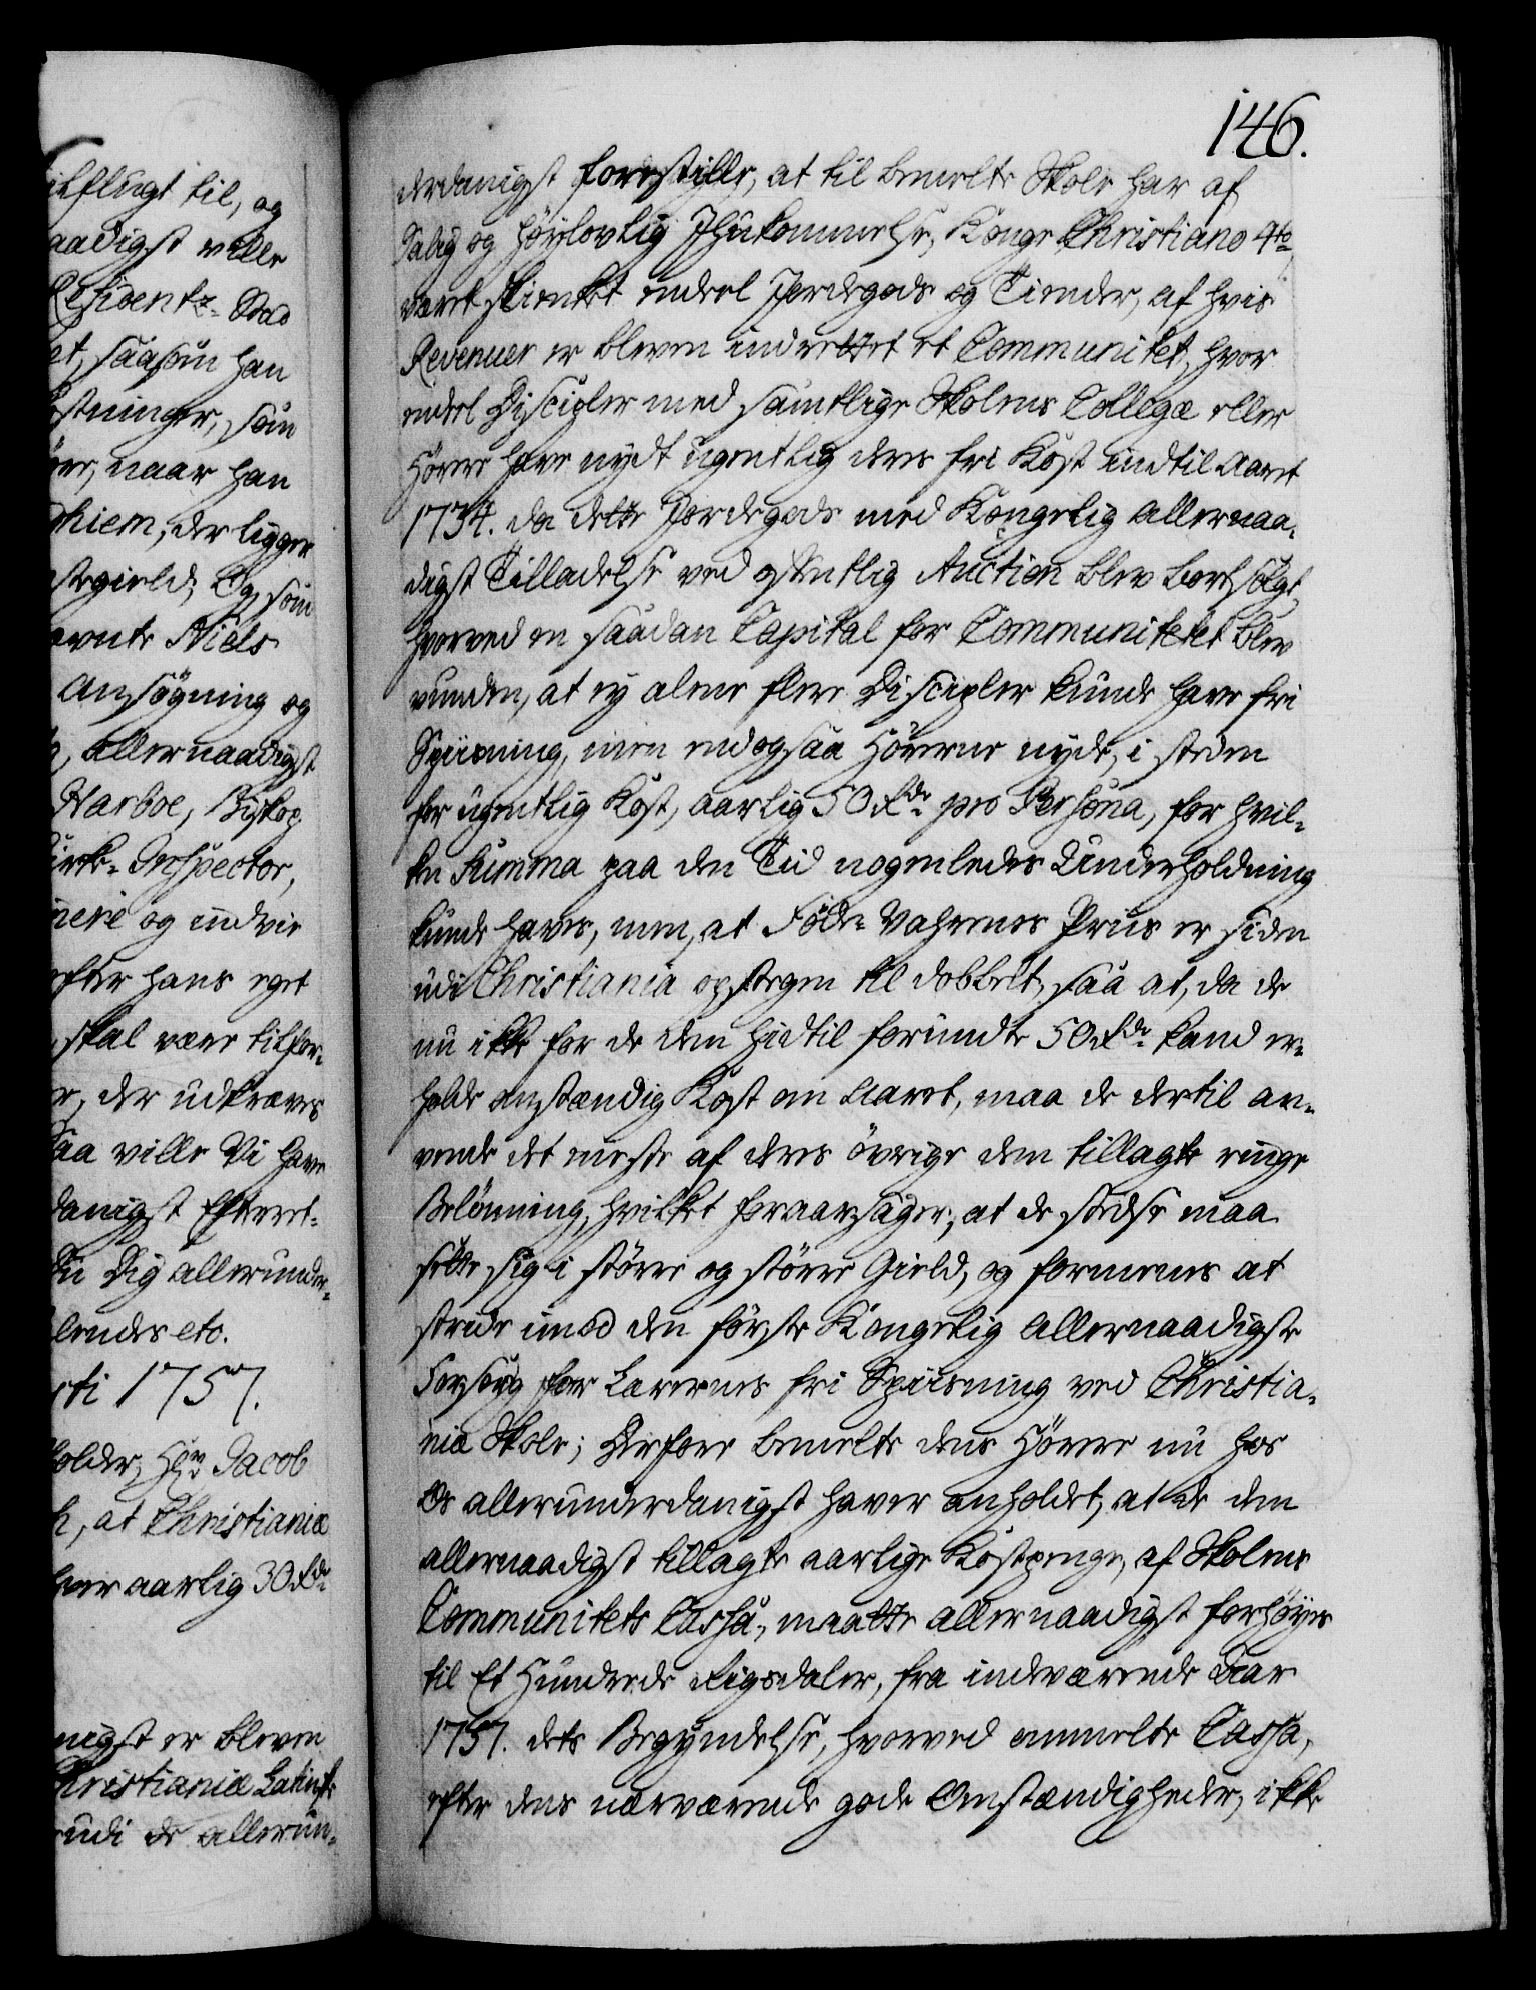 ilflugt til, og
aadigst ville
Residentz-Stad
et, saasom han
ostninger, som
öre, naar han
hiem, der ligger
stegield; Og som
evnte Niels
Ansøgning og
allernaadigst
Harboe, Biskop
Kirke-Inspector,
nere og indvie
efter hans eget
skal være tilfor-
der udkræves
Saa ville Vi have
danigst Efterret-
Du Dig allerunder-
lendes etc.
rti 1757.
older, Hr. Jacob
at Christianiæ
hver aarlig 30 Rdr.
nigst er bleven
Christianiæ Latinske
udi de allerun-
146.
derdanigst forestille, at til bemelte Skole har af
Salig og Höylovlig Ihukommelse, Konge Christiano 4to
været skienket endeel Jordegods og Tiender, af hvis
Revenuer er bleven indrettet et Communitet, hvor
endeel Discipler med samtlige Skolens Collegæ eller
Hörere have nydt ugentlig deres fri Kost indtil Aaret
1734. da dette Jordegods med Kongelig allernaa-
digst Tilladelse ved offentlig Auction blev bortsolgt,
hvorved en saadan Capital for Communitetet blev
vunden, at ey alene flere Discipler kunde have fri
Spiisning, men endogsaa Hörerne nyde, i steden
for ugentlig Kost, aarlig 50 Rdr. pro Persona, for hvil-
ken Summa paa den Tid nogenledes Underholdning
kunde haves, men, at Föde-Vahrenes Priis er siden
udi Christiania opstegen til dobbelt, saa at, da de
nu ikke for de dem hidtil forundte 50 Rdr. kand er-
holde anstændig Kost om Aaret, maa de dertil an-
vende det meste af deres övrige dem tillagte ringe
Belönning, hvilket foraarsager, at de stedse maa
sette sig i större og större Gield, og formenes at
stride imod den förste Kongelig allernaadigste
Forsorg for Lærernes fri Spiisning ved Christia-
niæ Skole; Derfore bemelte dens Hörere nu hos
Os allerunderdanigst haver anholdet, at de dem
allernaadigst tillagte aarlige Kostpenge, af Skolens
Communitets Cassa, maatte allernaadigst forhöyes
til Et Hundrede Rigsdaler, fra indeværende Aar
1757. dets Begyndelse, hvorved ommelte Cassa,
efter dens nærværende gode Omstændigheder, ikke